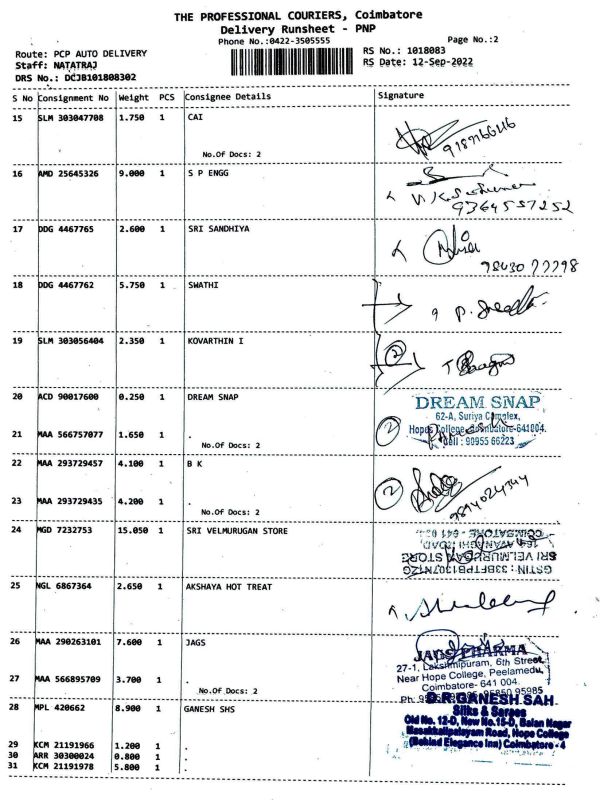 THE PROFESSIONAL COURIERS, Coimbatore
Delivery Runsheet - PNP
Phone No.:0422-3505555
Page No.:2
Route: PCP AUTO DELIVERY
RS No.: 1018083
Staff: NATATRAJ
RS Date: 12-Sep-2022
DRS No.: DCJB101808302
S No Consignment No Weight PCS Consignee Details Signature
15 SLM 303047708 1.750 1 CAI
No.Of Docs: 2
16 AMD 25645326 9.000 1 S P ENGG
9364557252
17 DDG 4467765 2.600 1 SRI SANDHIYA
9843077798
18 DDG 4467762 5.750 1 SWATHI
19 SLM 303056404 2.350 1 KOVARTHIN I
2
20 ACD 90017600 0.250 1 DREAM SNAP
DREAM SNAP
62-A, Suriya Complex,
Hope College, Coimbatore-641004.
Cell : 90955 66223
2
21 MAA 566757077 1.650 1 .
No.Of Docs: 2
22 MAA 293729457 4.100 1 B K
2
9894024344
23 MAA 293729435 4.200 1 .
No.Of Docs: 2
24 MGD 7232753 15.050 1 SRI VELMURUGAN STORE
GSTIN : 33BFTPB1307N1ZG
SRI VELMURUGAN STORE
COIMBATORE - 641 004.
25 NGL 6867364 2.650 1 AKSHAYA HOT TREAT
26 MAA 290263101 7.600 1 JAGS
JAGS PHARMA
27-1, Lakshmipuram, 6th Street,
Near Hope College, Peelamedu,
Coimbatore- 641 004.
27 MAA 566895709 3.700 1 .
No.Of Docs: 2
28 MPL 420662 8.900 1 GANESH SHS
D.R.GANESH SAH
Silks & Sarees
Old No. 12-D, New No.15-D, Balan Nagar
Masakkalipalayam Road, Hope College
(Behind Elegance Inn) Coimbatore - 4
29 KCM 21191966 1.200 1 .
30 ARR 30300024 0.800 1 .
31 KCM 21191978 5.800 1 .